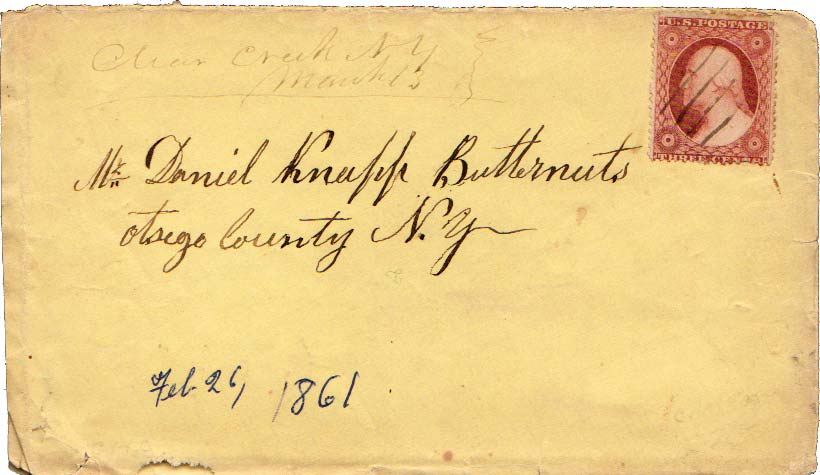 Clear Creek N.Y
March 13
U.S. POSTAGE
THREE CENTS
Mr Daniel Knapp Butternuts
Otsego County N.Y
Feb 26, 1861